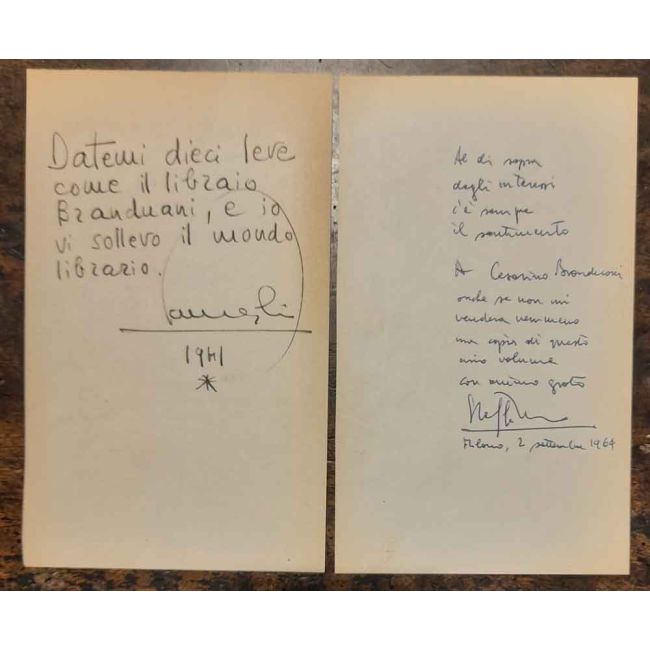 Datemi dieci leve
come il libraio
Branduani, e io
vi sollevo il mondo
librario.
1941
Al di sopra
degli interessi
c'è sempre
il sentimento
A Cesarino Branduani
anche se non mi
venderà nemmeno
una copia di questo
mio volume
con animo grato
Milano, 2 settembre 1964